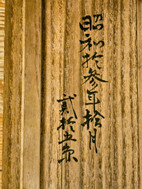 昭和拾参年拾月
貳拾五